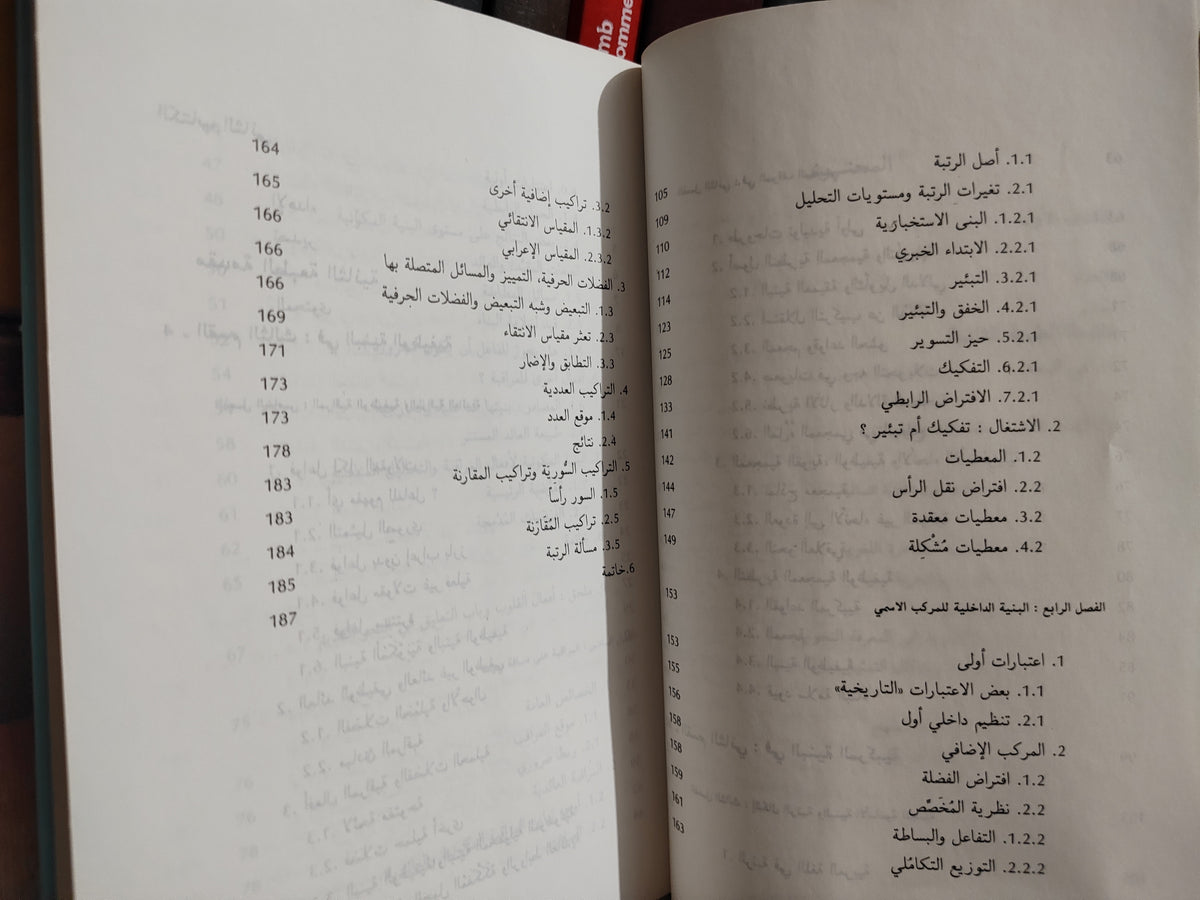 mb
omme
1.1. أصل الرتبة 105
2.1. تغيرات الرتبة ومستويات التحليل 109
1.2.1. البنى الاستخبارَية 110
2.2.1. الابتداء الخبري 112
3.2.1. التبئير 114
4.2.1. الخفق والتبئير 123
5.2.1. حيز التسوير 125
6.2.1. التفكيك 128
7.2.1. الافتراض الرابطي 133
2. الاشتغال : تفكيك أم تبئير ؟ 141
1.2. المعطيات 142
2.2. افتراض نقل الرأس 144
3.2. معطيات معقدة 147
4.2. معطيات مُشْكِلة 149
الفصل الرابع : البنية الداخلية للمركب الاسمي 153
1. اعتبارات أولى 153
1.1. بعض الاعتبارات «التاريخية» 155
2.1. تنظيم داخلي أول 156
2. المركب الإضافي 158
1.2. افتراض الفضلة 158
2.2. نظرية المُخَصِّص 159
1.2.2. التفاعل والبساطة 161
2.2.2. التوزيع التكامُلي 163
3.2. تراكيب إضافية أخرى 164
1.3.2. المقياس الانتقائي 165
2.3.2. المقياس الإعرابي 166
3. الفضلات الحرفية، التمييز والمسائل المتصلة بها 166
1.3. التبعيض وشبه التبعيض والفضلات الحرفية 166
2.3. تعثر مقياس الانتقاء 169
3.3. التطابق والإضمار 171
4. التراكيب العددية 173
1.4. موقع العدد 173
2.4. نتائج 178
5. التراكيب السُّورِيّة وتراكيب المقارنة 183
1.5. السور رأساً 183
2.5. تراكيب المُقَارَنة 184
3.5. مسألة الرتبة 185
6.خاتمة 187